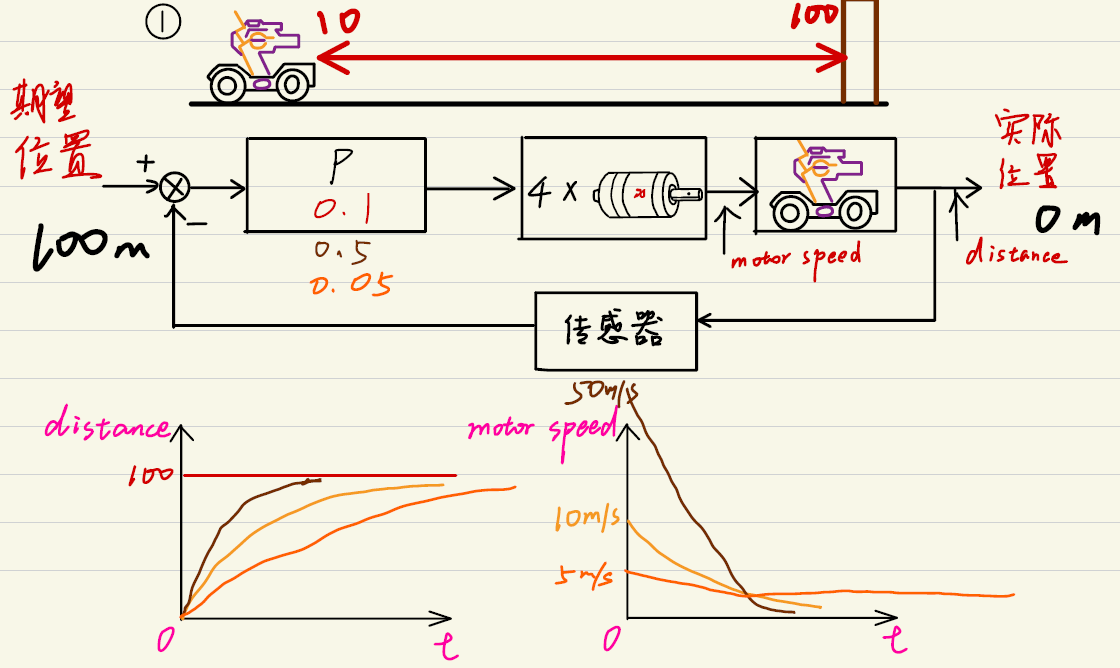 ①
10
100
期望
位置
+
-
100m
P
0.1
0.5
0.05
4 ×
motor speed
实际
位置
0 m
distance
传感器
distance
100
0
t
50m/s
motor speed
10m/s
5m/s
0
t